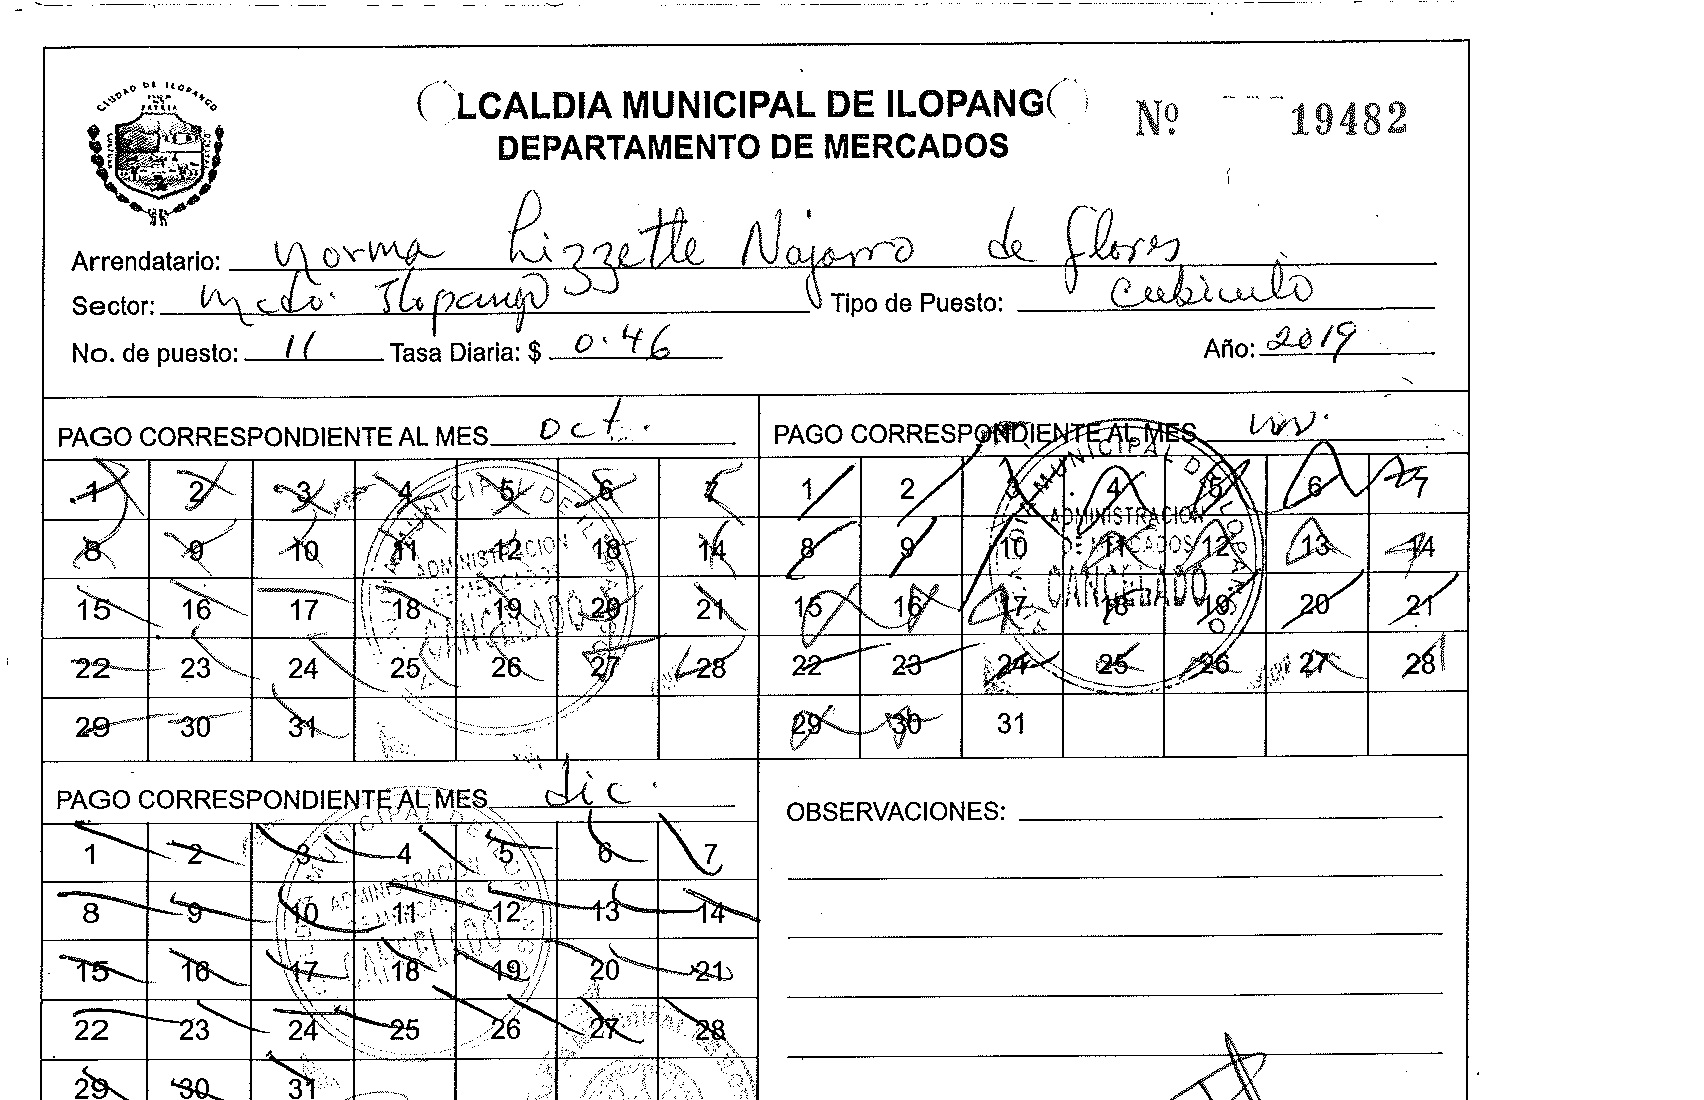 CIUDAD DE ILOPANGO
ALCALDIA MUNICIPAL DE ILOPANGO
DEPARTAMENTO DE MERCADOS
Nº 19482
Arrendatario: Norma Lizzette Najarro de Flores
Sector: Mcdo. Ilopango Tipo de Puesto: Cubiculo
No. de puesto: 11 Tasa Diaria: $ 0.46 Año: 2019
PAGO CORRESPONDIENTE AL MES oct.
1 2 3 4 5 6 7
8 9 10 11 12 13 14
15 16 17 18 19 20 21
22 23 24 25 26 27 28
29 30 31
ADMINISTRACION
DE MERCADOS
CANCELADO
PAGO CORRESPONDIENTE AL MES nov.
1 2 3 4 5 6 7
8 9 10 11 12 13 14
15 16 17 18 19 20 21
22 23 24 25 26 27 28
29 30 31
MUNICIPAL DE ILOPANGO
ADMINISTRACION
DE MERCADOS
CANCELADO
PAGO CORRESPONDIENTE AL MES dic.
1 2 3 4 5 6 7
8 9 10 11 12 13 14
15 16 17 18 19 20 21
22 23 24 25 26 27 28
29 30 31
ADMINISTRACION
DE MERCADOS
CANCELADO
OBSERVACIONES: